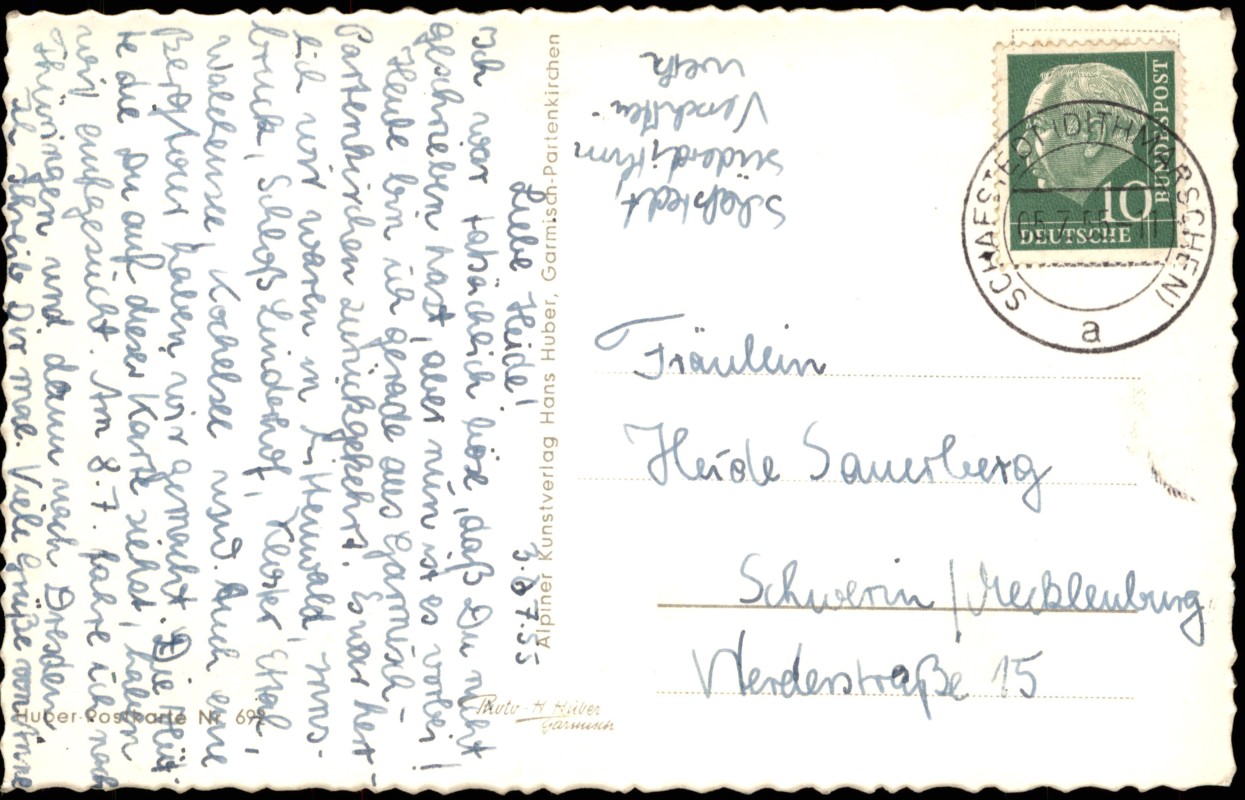 3.7.55
Liebe Heide!
Ich war tatsächlich böse, daß Du nicht
geschrieben hast, aber nun ist es vorbei!
Heute bin ich gerade aus Garmisch-
Partenkirchen zurückgekehrt. Es war herr-
lich wir waren in Mittenwald, Inns-
bruck, Schloß Linderhof, Kloster Ettal,
Walchensee, Kochelsee und. Auch eine
Bergtour haben wir gemacht. Die Hüt-
te die Du auf dieser Karte siehst, haben
wir aufgesucht. Am 8.7. fahre ich nach
Thüringen und dann nach Dresden.
Ich schreib Dir mal. Viele Grüße von
Alpiner Kunstverlag Hans Huber, Garmisch-Partenkirchen
Huber-Postkarte Nr. 699
Photo-H Huber
Garmisch
Schafstedt,
Süderdithm
DEUTSCHE
BUNDESPOST
10
SCHAFSTEDT (DITHMARSCHEN)
05.7.55-11
a
Fräulein
Heide Sauerberg
Schwerin / Mecklenburg
Werderstraße 15